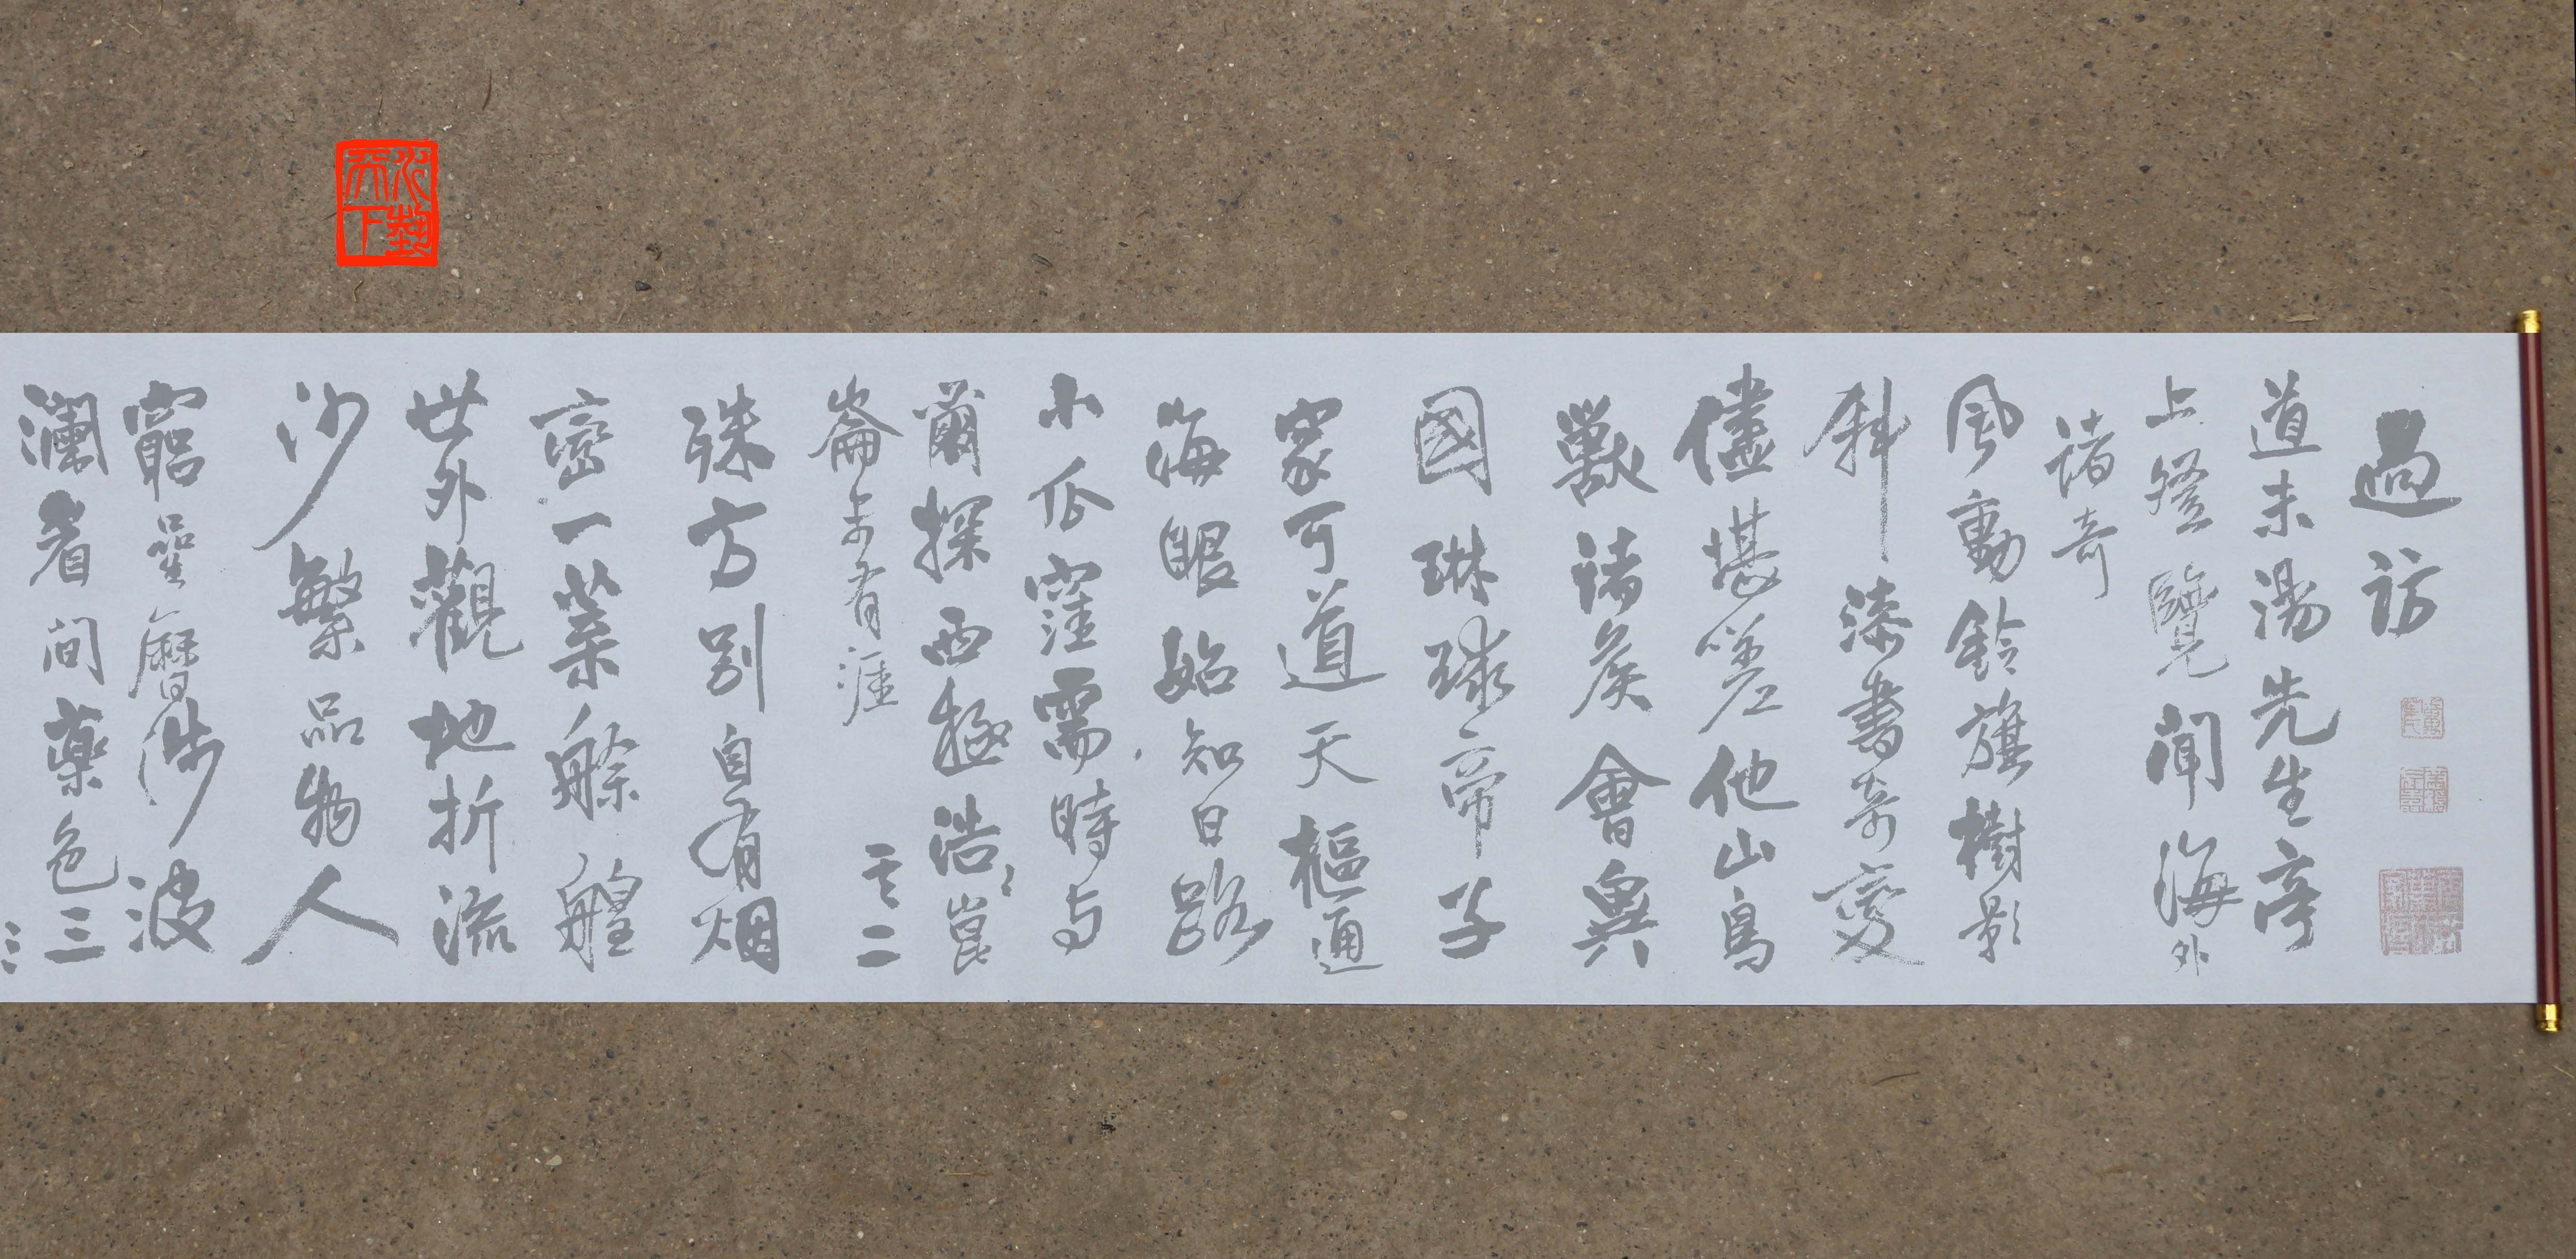 過訪
道未湯先生亭
上登覽聞海外
諸奇
風動鈴旗樹影
斜漆書奇變
儘堪嗟他山鳥
獸諸侯會異
國琳球帝子
家可道天樞通
海眼始知日路
小瓜窪需時与
爾探西極浩〻崑
崙未有涯 其二
殊方別自有烟
巒一葉艅艎
世外觀地折流
沙繁品物人
窮星曆涉波
瀾看間藥色三